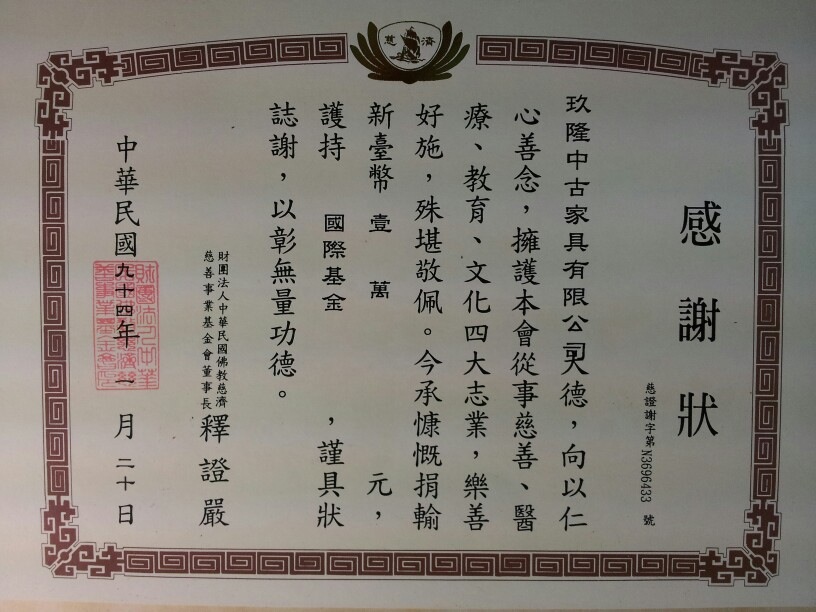 慈濟
感謝狀
慈證謝字第N3696433號
玖隆中古家具有限公司大德，向以仁
心善念，擁護本會從事慈善、醫
療、教育、文化四大志業，樂善
好施，殊堪敬佩。今承慷慨捐輸
新臺幣壹萬元，
護持國際基金，謹具狀
誌謝，以彰無量功德。
財團法人中華民國佛教慈濟
慈善事業基金會董事長
釋證嚴
中華民國九十四年一月二十日